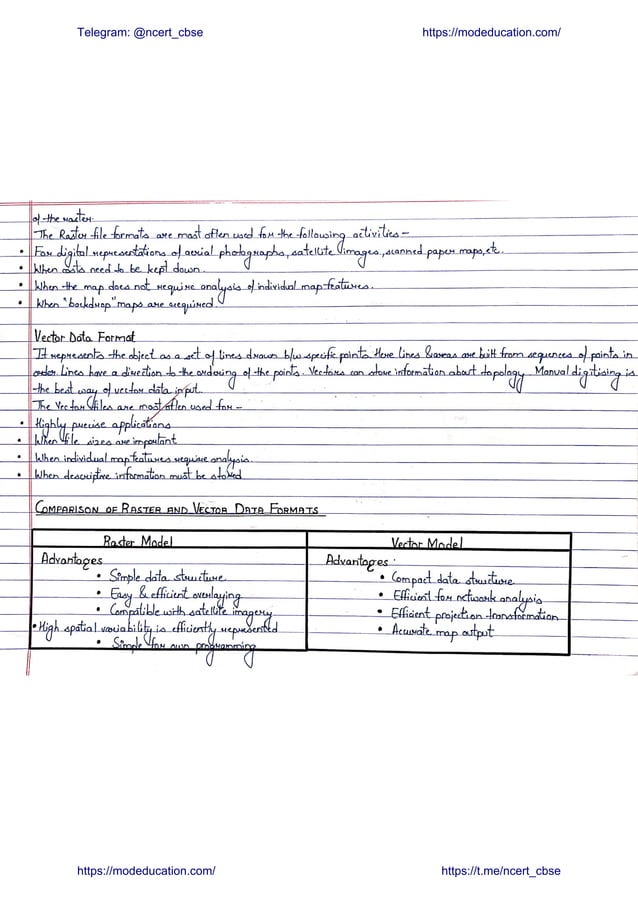 Telegram: @ncert_cbse
https://modeducation.com/
of the raster.
The Raster file formats are most often used for the following activities –
• For digital representations of aerial photographs, satellite images, scanned paper maps, etc.
• When costs need to be kept down.
• When the map does not require analysis of individual map features.
• When "backdrop" maps are required.
Vector Data Format
It represents the object as a set of lines drawn b/w specific points. Here lines & areas are built from sequences of points in
order. Lines have a direction to the ordering of the points. Vectors can store information about topology. Manual digitising is
the best way of vector data input.
The Vector files are most often used for –
• Highly precise applications
• When file sizes are important
• When individual map features require analysis.
• When descriptive information must be stored
COMPARISON OF RASTER AND VECTOR DATA FORMATS
Raster Model
Vector Model
Advantages
• Simple data structure
• Easy & efficient overlaying
• Compatible with satellite imagery
• High spatial variability is efficiently represented
• Simple for own programming
Advantages:
• Compact data structure
• Efficient for network analysis
• Efficient projection transformation
• Accurate map output
https://modeducation.com/
https://t.me/ncert_cbse